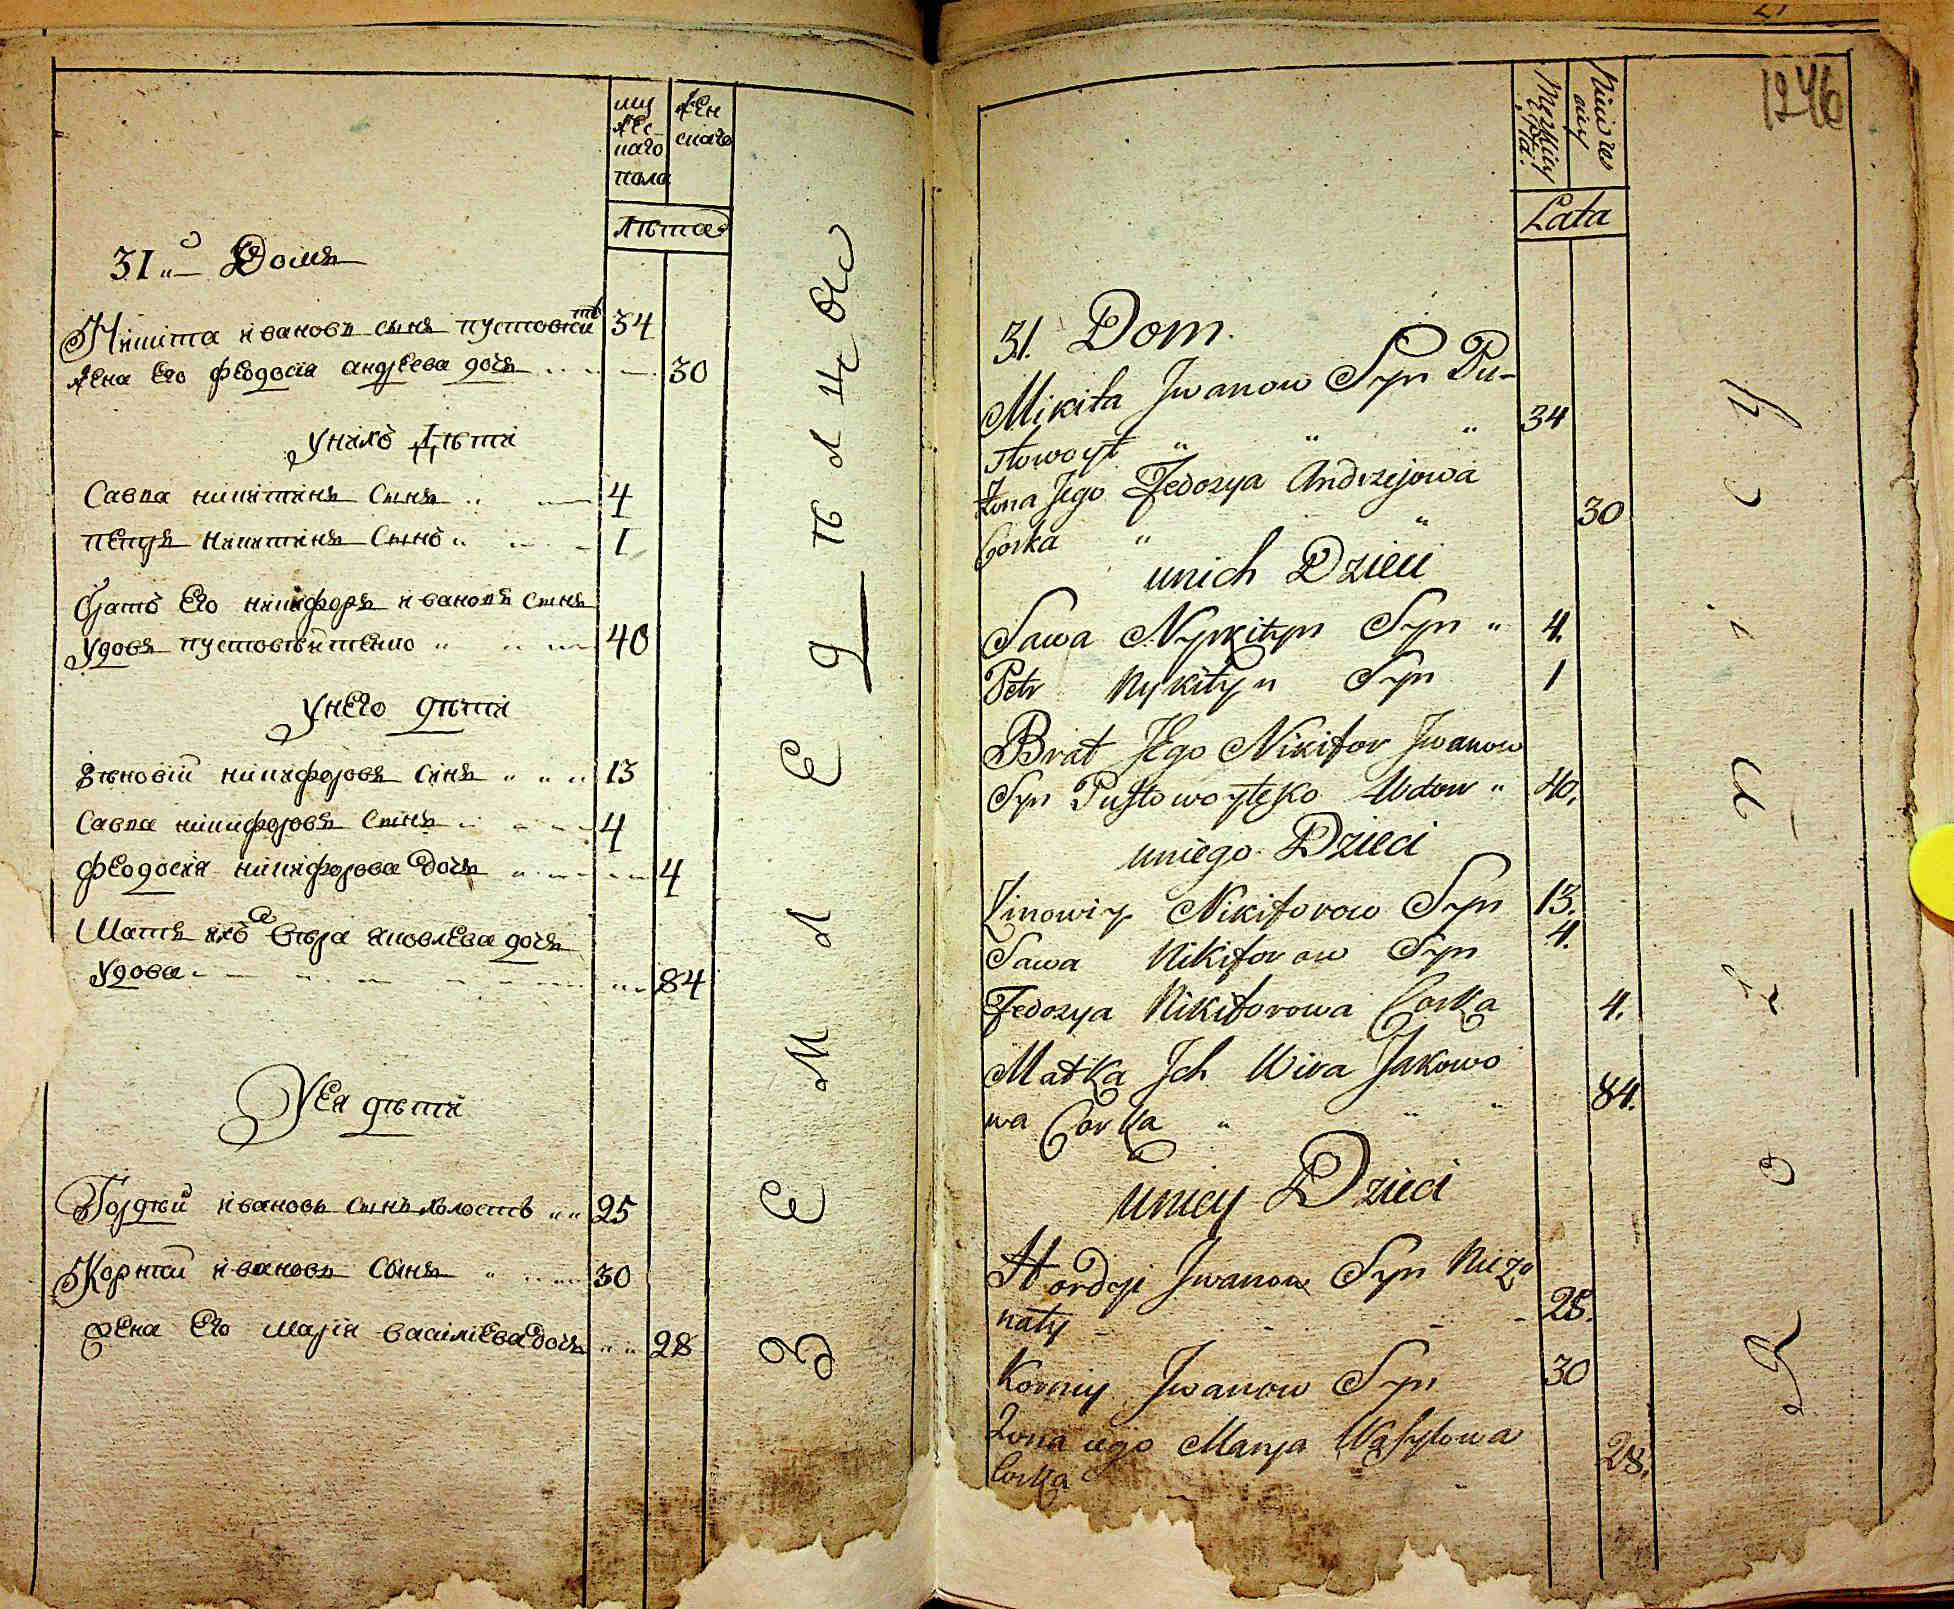 му
жес-
каго
пола
жен
скаго
лѣта
31„ Домъ
Никита ивановъ сынъ пустовитъ 34
жена его феодосія андреева дочь 30
унихъ Дѣти
Савва никитинъ сынъ 4
петръ никитинъ сынъ 1
Братъ его никифоръ ивановъ сынъ
удовъ пустовѣйтенко 40
унего дѣти
зѣновій никифоровъ синъ 13
Савва никифоровъ сынъ 4
феодосия никифорова дочь 4
Мать ихъ вѣра яковлева дочь
удова 84
Уея дѣти
Гордѣй ивановъ сынъ холостъ 25
Корнѣй ивановъ сынъ 30
жена его марія василіева дочь 28
земледѣлцы
1246
Męzkiey
Płci
Niewies
ciey
Lata
31. Dom.
Mikita Jwanow Syn Pu-
stowoyt 34
Zona Jego Fedosya Andrzejowa
Corka 30
unich Dzieci
Sawa Nykityn Syn 4.
Petr Nykityn Syn 1
Brat Jego Nikifor Jwanow
Syn Pustowoytęko Wdow 40.
uniego Dzieci
Zinowiy Nikiforow Syn 13.
Sawa Nikiforow Syn 4.
Fedosya Nikiforowa Corka 4.
Matka Jch Wira Jakowo
wa Corka 84.
uniey Dzieci
Hordeji Jwanow Syn Niezo
naty 25.
Korniy Jwanow Syn 30
Zona iego Marya Wasylowa
Corka 28.